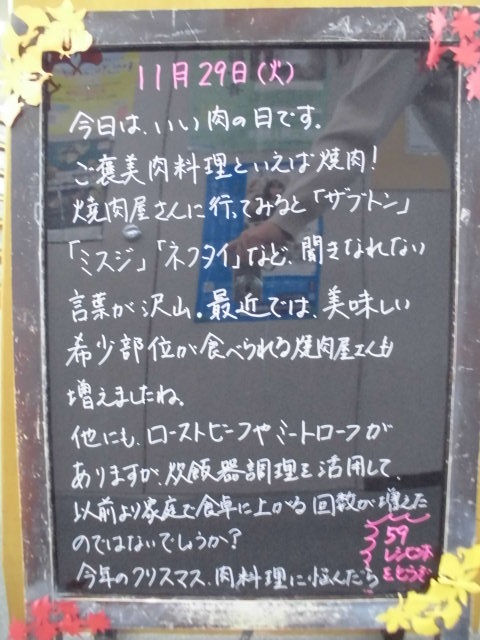 11月29日(火)
今日は、いい肉の日です。
ご褒美肉料理といえば焼肉!
焼肉屋さんに行ってみると「ザブトン」
「ミスジ」「ネクタイ」など、聞きなれない
言葉が沢山。最近では、美味しい
希少部位が食べられる焼肉屋さんも
増えましたね。
他にも、ローストビーフやミートローフが
ありますが、炊飯器調理を活用して
以前より家庭で食卓に上がる回数が増えた
のではないでしょうか?
今年のクリスマス、肉料理に悩んだら
59
レシピ本
をどうぞ